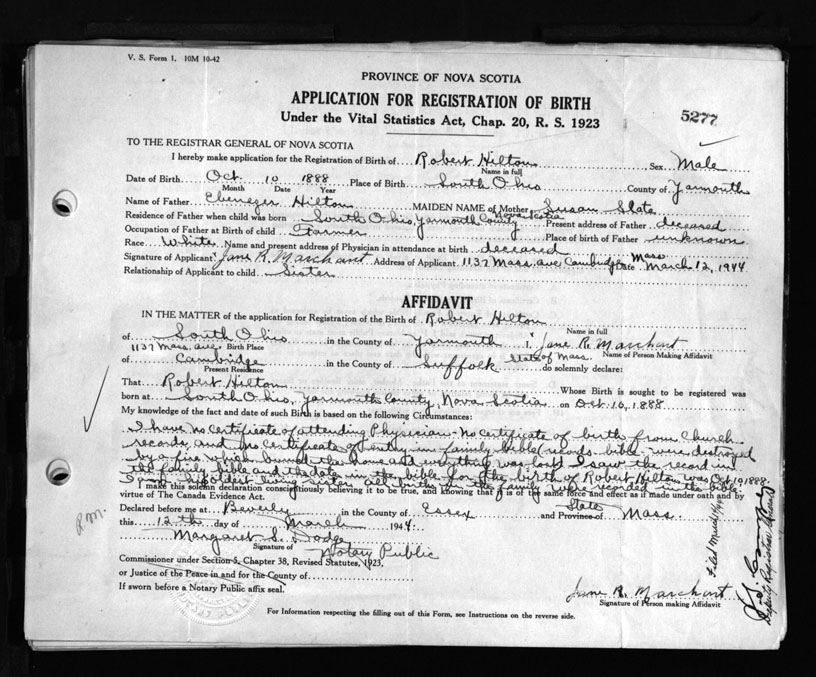 V. S. Form 1. 10M 10-42
PROVINCE OF NOVA SCOTIA
APPLICATION FOR REGISTRATION OF BIRTH
5277
Under the Vital Statistics Act, Chap. 20, R. S. 1923
TO THE REGISTRAR GENERAL OF NOVA SCOTIA
I hereby make application for the Registration of Birth of Robert Hilton Sex Male
Name in full
Date of Birth Oct. 10 1888 Place of Birth South Ohio County of Yarmouth
Month Date Year
Name of Father Ebenezer Hilton MAIDEN NAME of Mother Susan Slate
Residence of Father when child was born South Ohio, Yarmouth County Nova Scotia Present address of Father deceased
Occupation of Father at Birth of child Farmer Place of birth of Father unknown
Race White Name and present address of Physician in attendance at birth deceased
Signature of Applicant Jane R. Marchant Address of Applicant 1137 Mass ave Cambridge Mass Date March 12, 1944
Relationship of Applicant to child Sister
AFFIDAVIT
IN THE MATTER of the application for Registration of the Birth of Robert Hilton
Name in full
of South Ohio in the County of Yarmouth I, Jane R. Marchant
1137 Mass. ave. Birth Place Name of Person Making Affidavit
of Cambridge in the County of Suffolk State of Mass do solemnly declare:
Present Residence
That Robert Hilton Whose Birth is sought to be registered was
born at South Ohio, Yarmouth County, Nova Scotia on Oct. 10, 1888.
My knowledge of the fact and date of such Birth is based on the following Circumstances:
I have no certificate of attending Physician - no certificate of birth from Church
records and no certificate of entry in family bible records - bible were destroyed
by a fire which burned the home and everything was lost I saw the record in
the family bible and the date in the bible for the birth of Robert Hilton was Oct 10, 1888.
I am oldest living sister all births in the family were recorded in the bible.
I make this solemn declaration conscientiously believing it to be true, and knowing that it is of the same force and effect as if made under oath and by
virtue of The Canada Evidence Act.
Declared before me at Beverly in the County of Essex and Province of State Mass.
this 12th day of March 1944
R.M.
Margaret S. Dodge
Signature of Notary Public
Commissioner under Section 5, Chapter 38, Revised Statutes, 1923,
or Justice of the Peace in and for the County of
If sworn before a Notary Public affix seal.
Jane R. Marchant
Signature of Person making Affidavit
For Information respecting the filling out of this Form, see Instructions on the reverse side.
Filed March
Deputy Registrar General